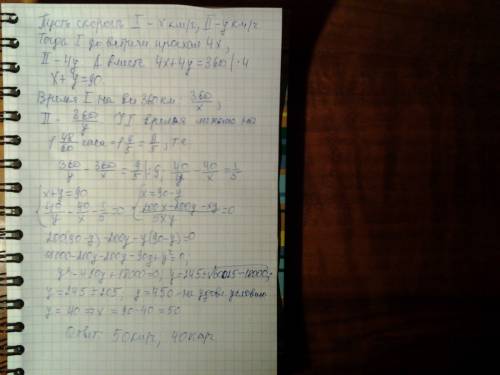 Пусть скорость I - x км/ч, II - y км/ч
Тогда I до встречи прошел 4x,
II - 4y А вместе 4x+4y=360 |:4
x + y = 90.
Время I на все 360 км 360/x,
II - 360/y
1 48/60 часа = 1 4/5 = 9/5, т.е.
360/y - 360/x = 9/5 |:9, 40/y - 40/x = 1/5
{ x+y=90 { x=90-y
{ 40/y - 40/x - 1/5 = 0 { (200x-200y-xy)/5xy = 0
200(90-y)-200y-y(90-y)=0
18000-200y-200y-90y+y²=0,
y²-490y+18000=0, y=245±√60025-18000,
y=245±205, y=450 - не удовл. условию
y=40 ⇒ x=90-40=50
Ответ 50км/ч, 40км/ч